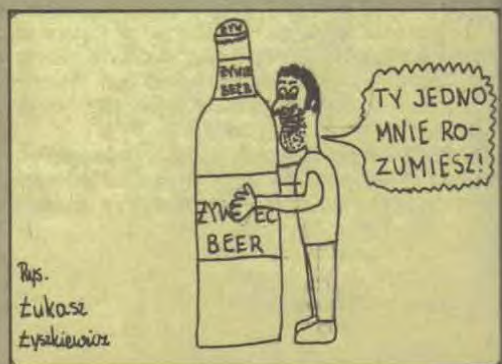 ŻYW
ŻYWIE
BEER
ŻYWIEC
BEER
TY JEDNO
MNIE RO-
ZUMIESZ!
Rys.
Łukasz
Łyszkiewicz